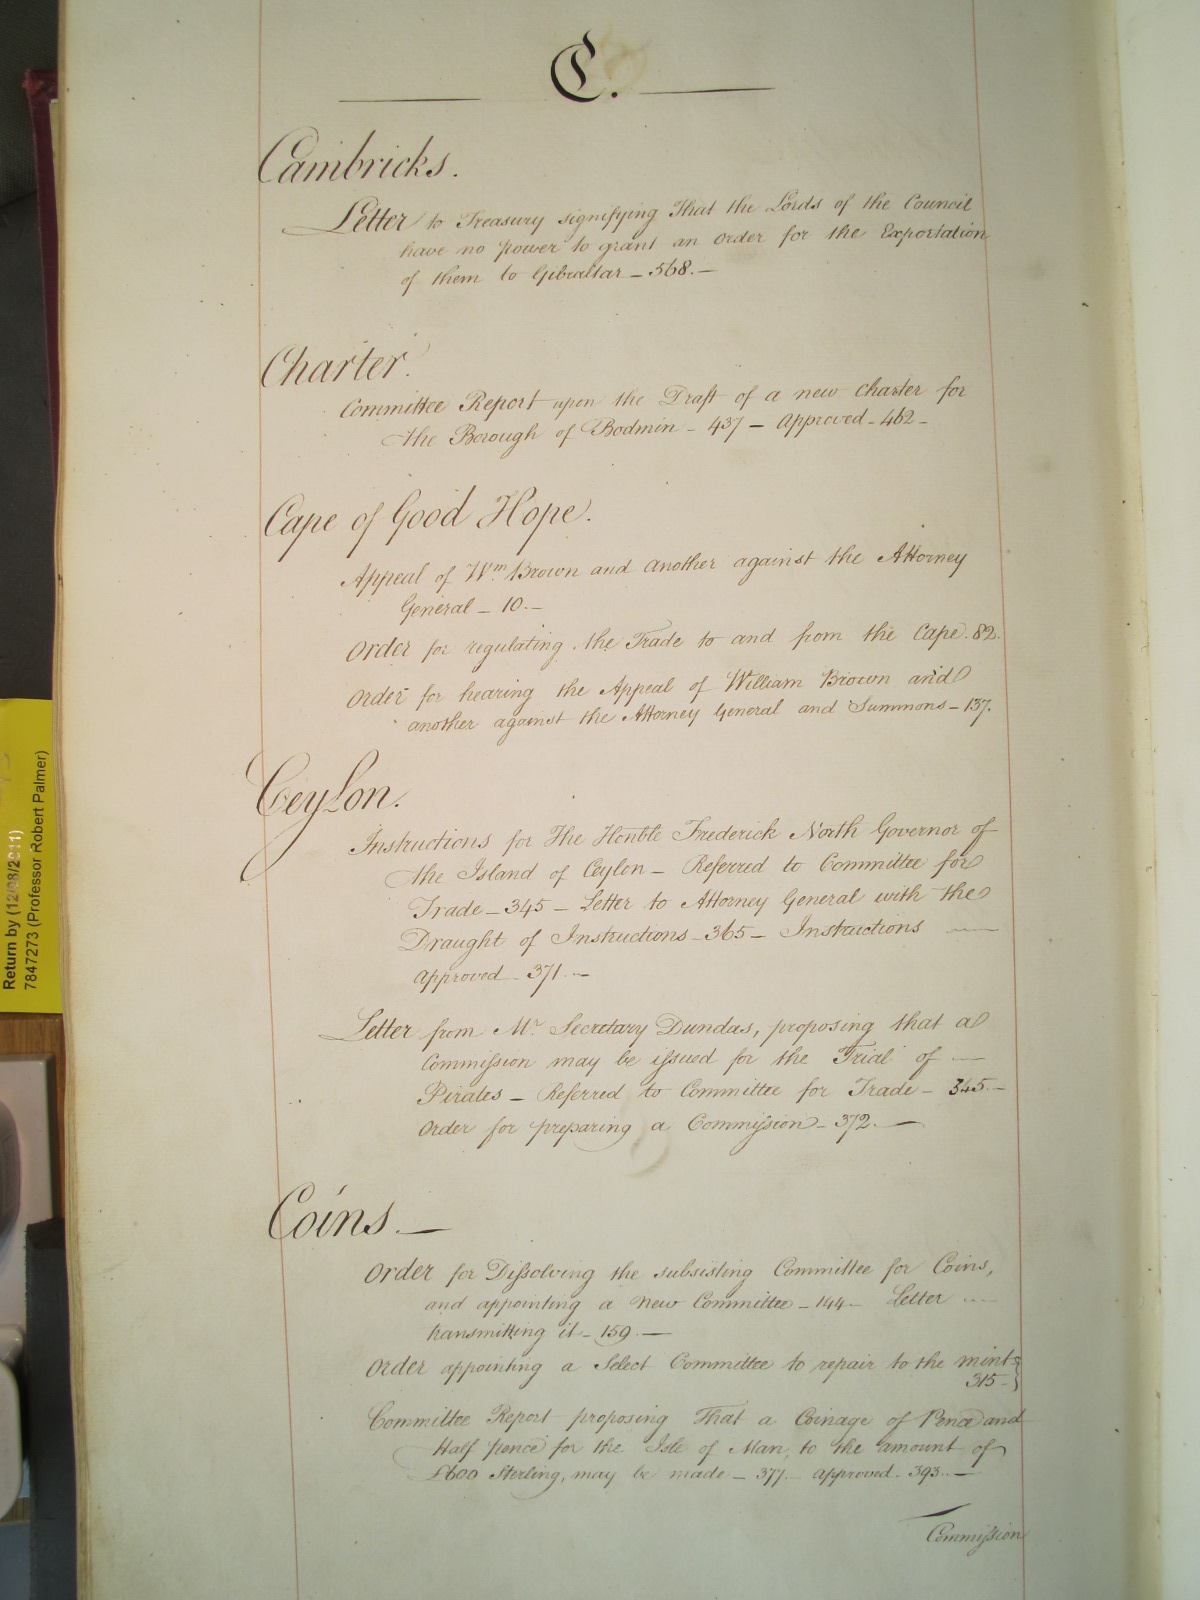 C.
Cambricks.
Letter to Treasury signifying that the Lords of the Council
have no power to grant an order for the Exportation
of them to Gibraltar – 568. –
Charter.
Committee Report upon the Draft of a new Charter for
the Borough of Bodmin – 437 – Approved – 462 –
Cape of Good Hope.
Appeal of Wm. Brown and another against the Attorney
General – 10. –
Order for regulating the Trade to and from the Cape. 82.
Order for hearing the Appeal of William Brown and
another against the Attorney General and Summons – 137.
Ceylon.
Instructions for The Honble Frederick North Governor of
the Island of Ceylon – Referred to Committee for
Trade – 345 – Letter to Attorney General with the
Draught of Instructions – 365 – Instructions —
approved – 371. –
Letter from Mr. Secretary Dundas, proposing that a
Commission may be issued for the Trial of —
Pirates – Referred to Committee for Trade – 345. –
Order for preparing a Commission – 372. —
Coins. –
Order for Dissolving the subsisting Committee for Coins,
and appointing a New Committee – 144 – Letter —
transmitting it – 159. —
Order appointing a Select Committee to repair to the mint –
315 –
Committee Report proposing That a Coinage of Pence and
Half pence for the Isle of Man, to the amount of
£600 Sterling, may be made – 377 – approved – 393. –
Commission
Return by (12/08/2011)
7847273 (Professor Robert Palmer)